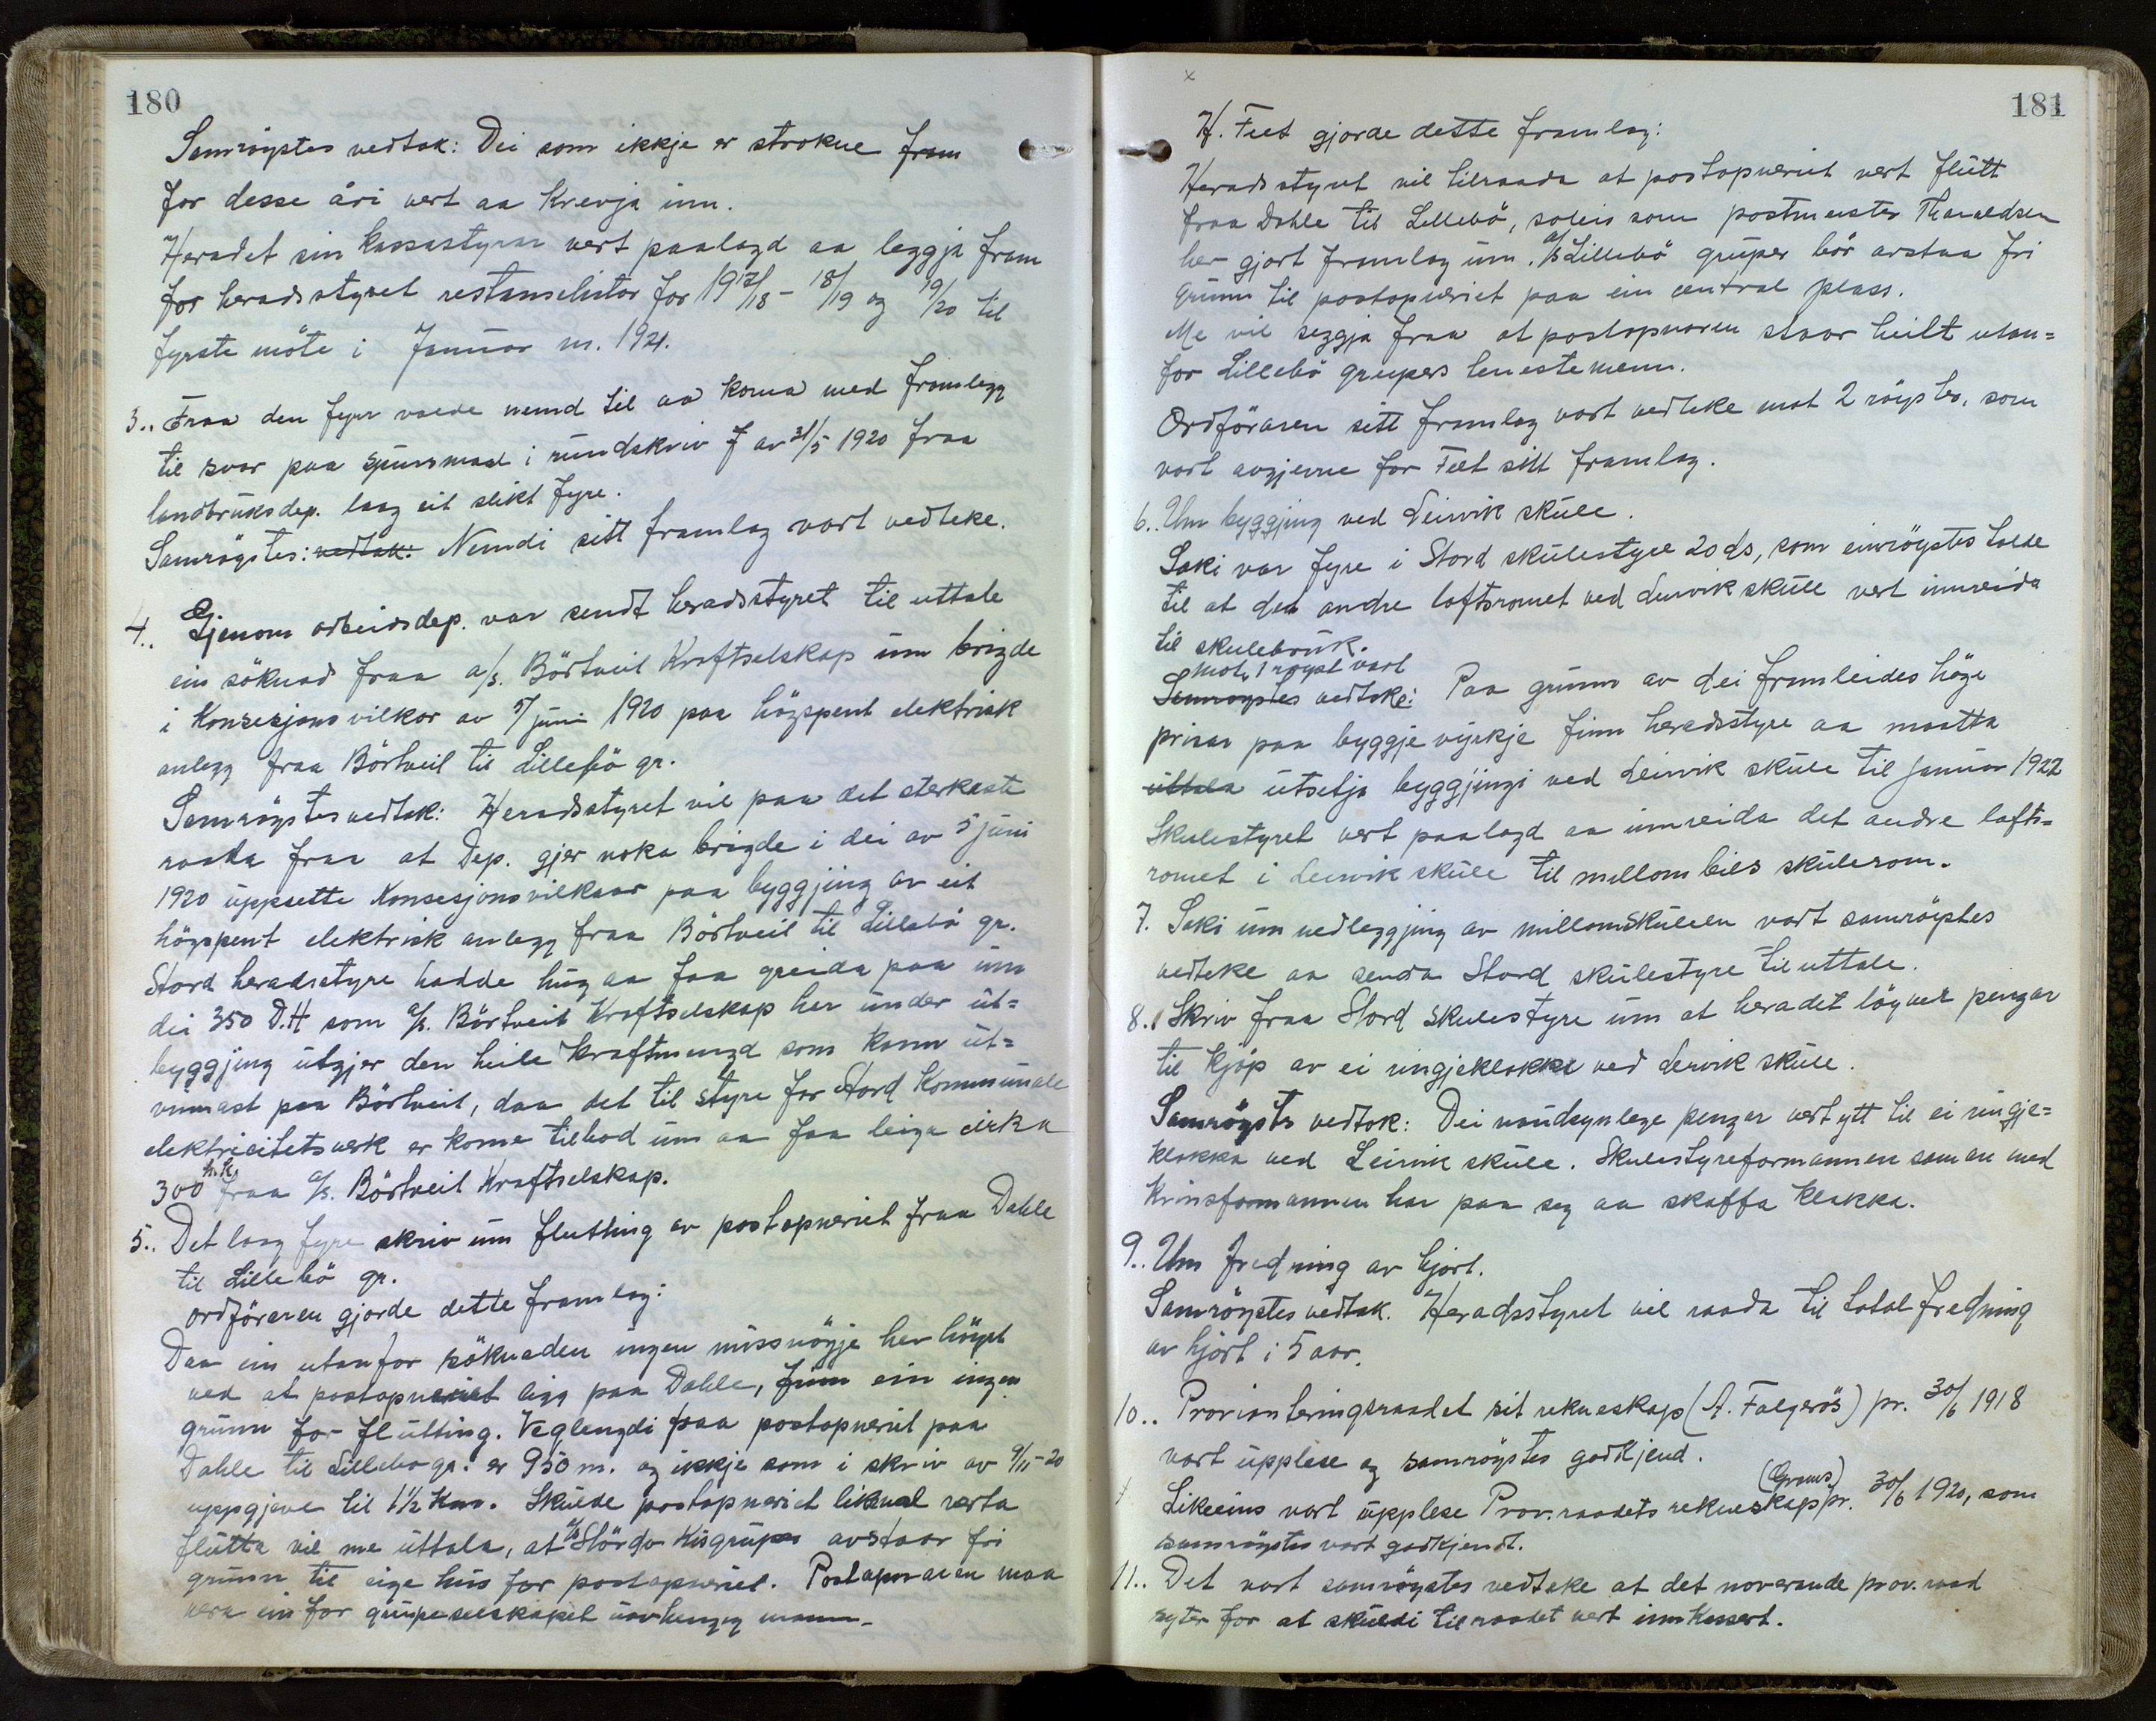 180
Samröystes vedtak: Dei som ikkje er strokne fram
for desse åri vert aa krevja inn.
Heradet sin kassastyrar vert paalagd aa leggja fram
for heradsstyret restanselistor for 1917/18 - 18/19 og 19/20 til
fyrste möte i Januar m. 1921.
3.. Fraa den fyrr valde nemd til aa koma med framlegg
til svar paa spursmaal i rundskriv J av 31/5 1920 fraa
landbruksdep. laag eit slikt fyre.
Samröystes: vedtak: Nemdi sitt framlag vart vedteke.
4.. Gjenom arbeidsdep. var sendt heradsstyret til uttale
ein söknad fraa a/s. Börtveit Kraftselskap um brigde
i Konsesjonsvilkor av 5/juni 1920 paa högspent elektrisk
anlegg fraa Börtveit til Lillebö gr.
Samröystes vedtak: Heradsstyret vil paa det sterkaste
raada fraa at Dep. gjer noka brigde i dei av 5 juni
1920 uppsette Konsesjonsvilkaar paa byggjing av eit
högspent elektrisk anlegg fraa Börtveit til Lillebö gr.
Stord heradsstyre hadde hug aa faa greida paa um
dei 350 D.H som a/s. Börtveit Kraftselskap her under ut=
byggjing utgjer den heile kraftmengd som kann ut=
vinnast paa Börtveit, daa det til styre for Stord Kommunale
elektricitetsverk er kome tilbod um aa faa leiga cirka
300 h.k. fraa a/s. Börtveit Kraftselskap.
5.. Det laag fyre skriv um flutting av postopneriet fraa Dahle
til Lillebö gr.
ordföraren gjorde dette framlag:
Daa ein utanfor söknaden ingen missnögje hev höyrt
ved at postopneriet ligg paa Dahle, finn ein ingen
grunn for flutting. Veglengdi fraa postopneriet paa
Dahle til Lillebo gr. er 950 m. og ikkje som i skriv av 9/11-20
uppgjeve til 1½ Km. Skulde postopneriet likevel verta
flutta vil me uttala, at a/s Stordø Kisgruper avstaar fri
grunn til eige hus for postopneriet. Postopnaren maa
vera ein for grupeselskapet uavhengig mann.
181
H. Feet gjorde dette framlag:
Heradsstyret vil tilraada at postopneriet vert flutt
fraa Dahle til Lillebö, soleis som postmeister Tharaldsen
her gjort framlag um. a/s Lillebö gruper bör avstaa fri
Grunn til postopneriet paa ein central plass.
Me vil seggja fraa at postopnaren staar heilt utan=
for Lillebö grupers tenestemenn.
Ordföraren sitt framlag vart vedteke mot 2 röyster, som
vart avgjevne for Feet sitt framlag.
6.. Um byggjing ved Leirvik skule.
Saki var fyre i Stord skulestyre 20 ds, som einröystes talde
til at det andre loftsromet ved Leirvik skule vert innreida
til skulebruk.
mot 1 royst vart
Samroystes vedteke: Paa grunn av dei framleides höge
prisar paa byggjevyrkje finn heradsstyre aa maatta
uttala utsetja byggjingi ved Leirvik skule til januar 1922
Skulestyret vert paalagd aa innreida det andre lofts=
romet i Leirvik skule til mellombils skulerom.
7. Saki um nedleggjing av millomskulen vart samröystes
vedteke aa senda Stord skulestyre til uttale.
8. Skriv fraa Stord Skulestyre um at heradet löyver pengar
til kjöp av ei ringjeklokka ved Leirvik skule.
Samröystes vedtok: Dei naudsynlege pengar vert ytt til ei ringje=
klokka ved Leirvik skule. Skulestyreformannen saman med
Krinsformannen har paa seg aa skaffa klokka.
9.. Um fredning av hjort.
Samröystes vedtak. Heradsstyret vil raada til total fredning
av hjort i 5 aar.
10.. Provianteringsraadet sit rekneskap (A. Falgerös) pr. 30/6 1918
vart upplese og samröystes godkjend.
Likeeins vart upplese Prov.raadets rekneskap (Grows) pr. 30/6 1920, som
samröystes vart godkjendt.
11.. Det vart samröystes vedteke at det noverande prov.raad
syter for at skuldi til raadet vert innkassert.